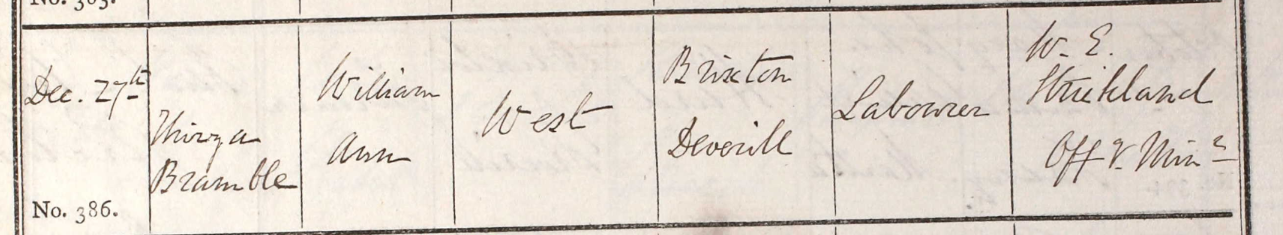 No. 385.
Dec. 27th
Thirza
Bramble
William
Ann
West
Brixton
Deverill
Labourer
W. E.
Strickland
Off g Minr
No. 386.